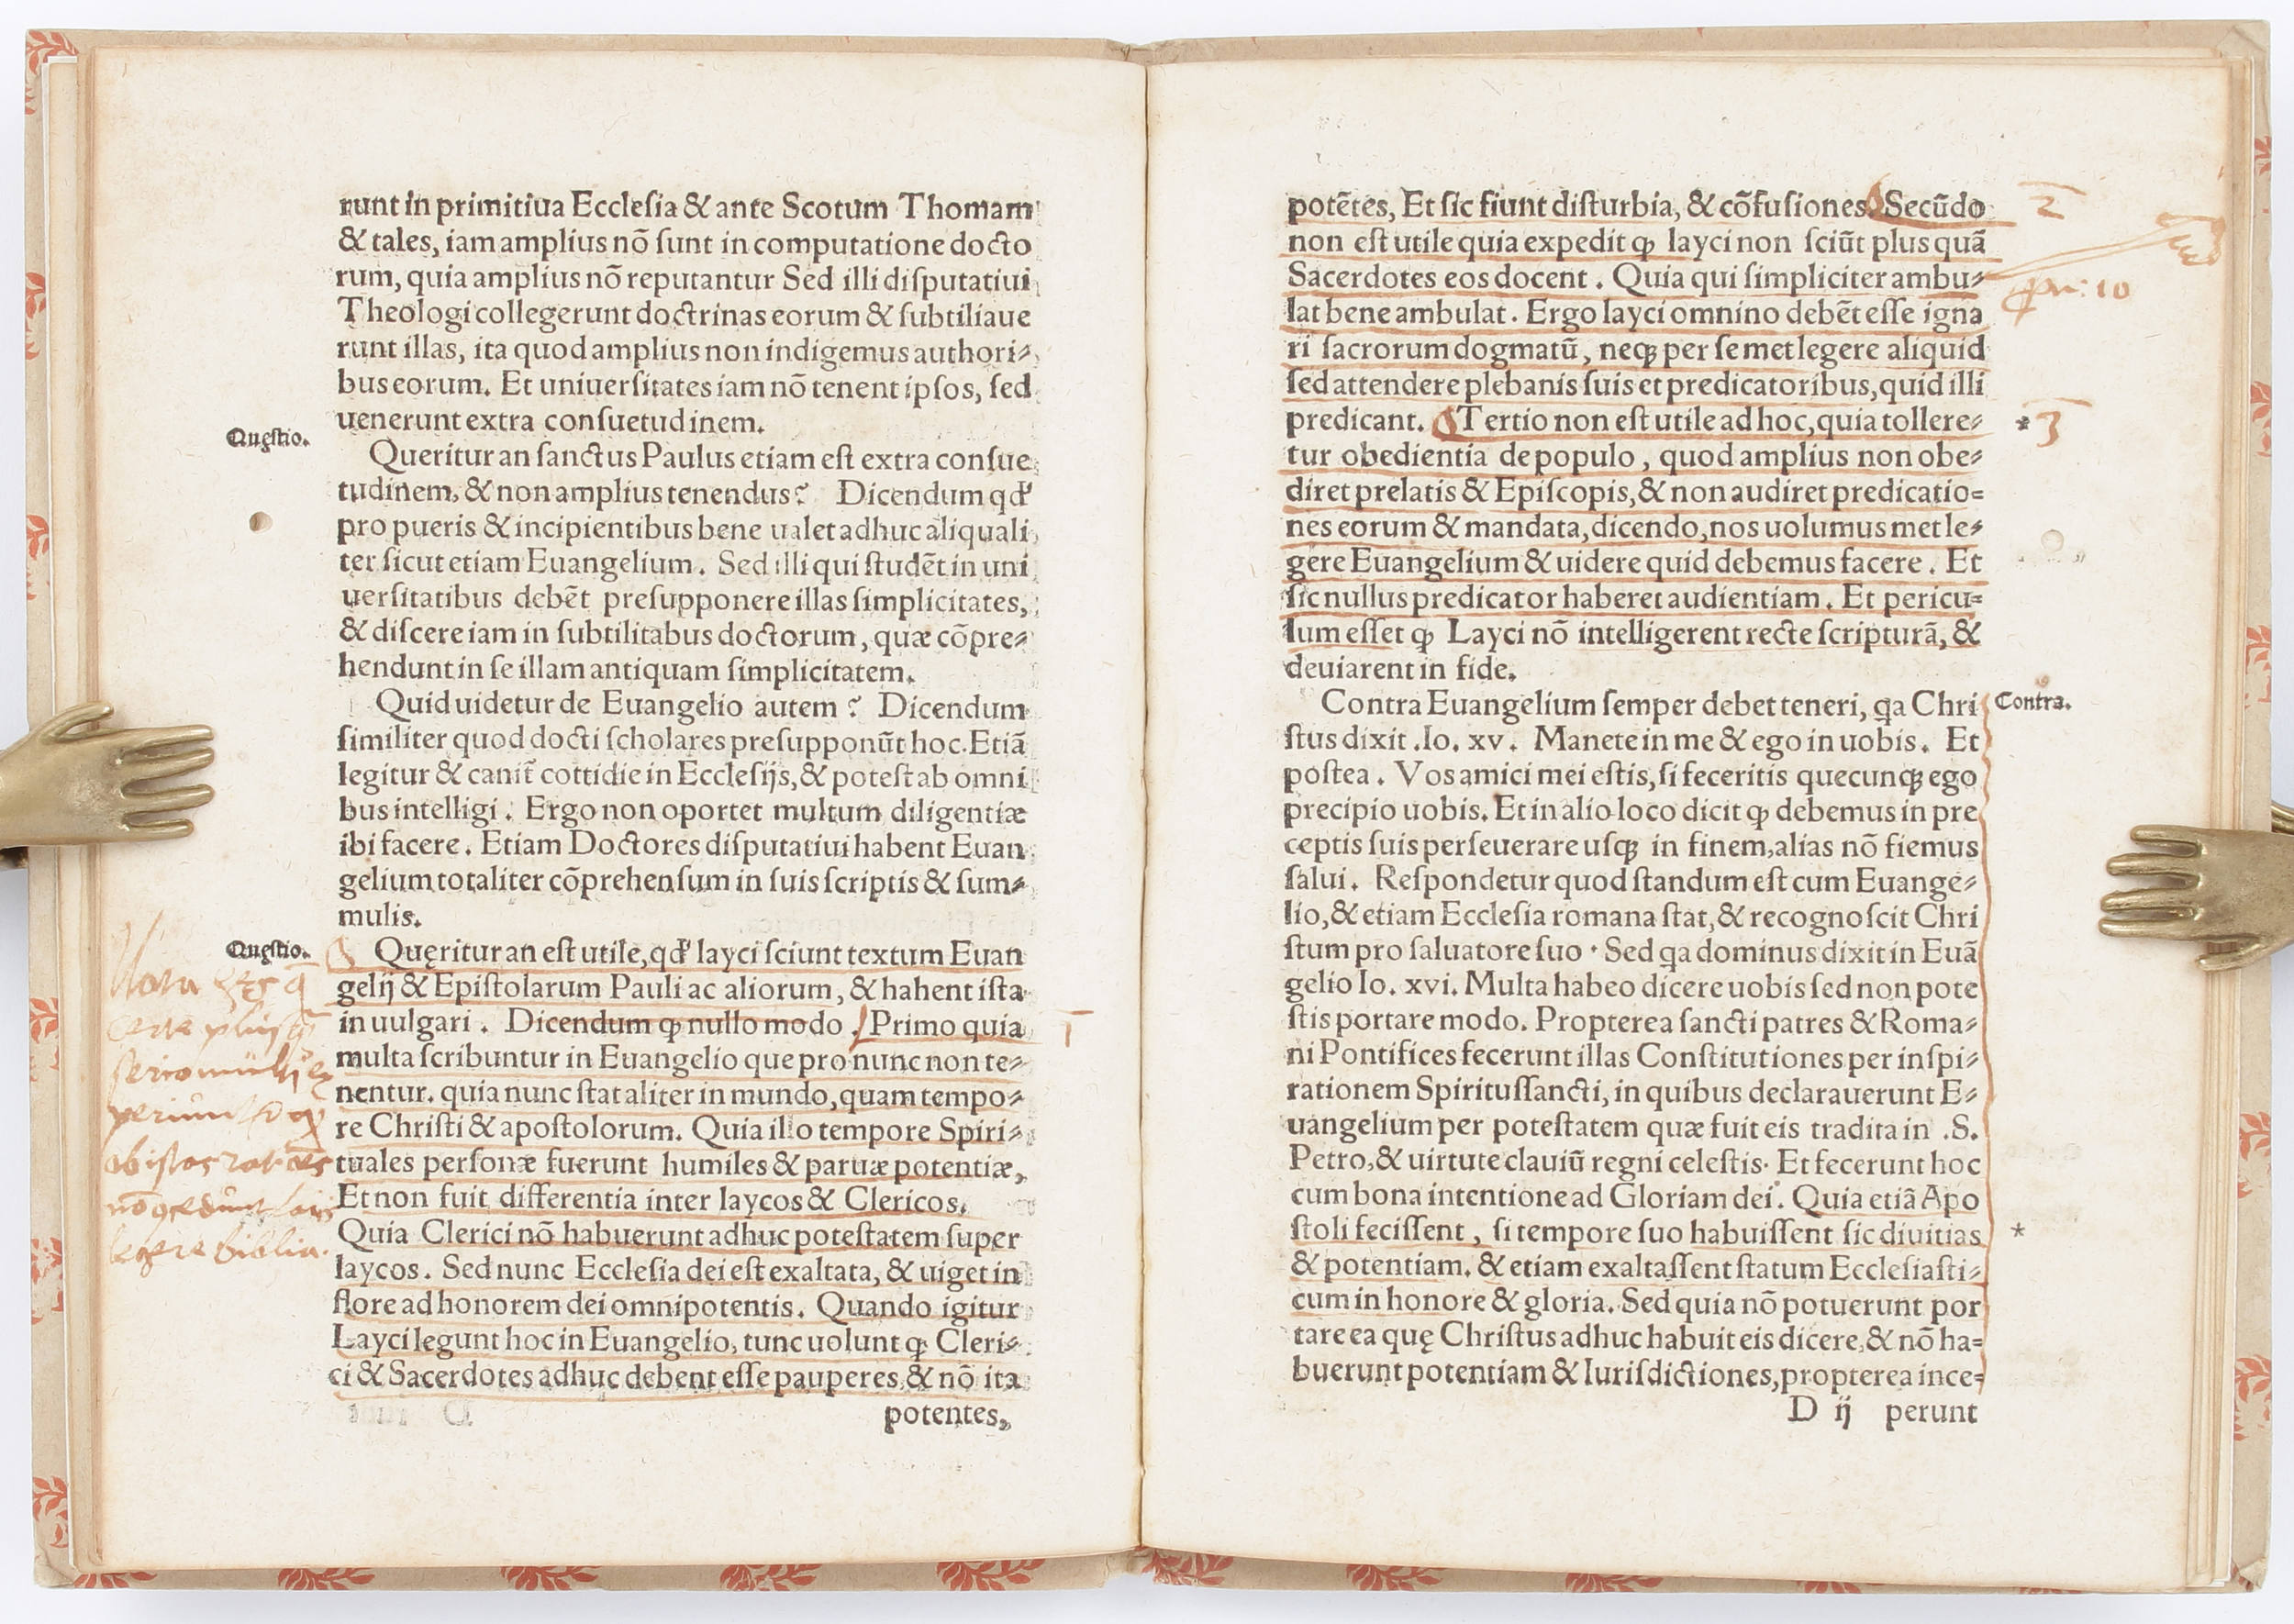 runt in primitiua Ecclesia & ante Scotum Thomam
& tales, iam amplius nõ sunt in computatione docto
rum, quia amplius nõ reputantur Sed illi disputatiui
Theologi collegerunt doctrinas eorum & subtiliaue
runt illas, ita quod amplius non indigemus authori⸗
bus eorum. Et uniuersitates iam nõ tenent ipsos, sed
uenerunt extra consuetudinem.
Quęstio.
Queritur an sanctus Paulus etiam est extra consue
tudinem, & non amplius tenendus? Dicendum qđ
pro pueris & incipientibus bene ualet adhuc aliquali
ter sicut etiam Euangelium. Sed illi qui studẽt in uni
uersitatibus debẽt presupponere illas simplicitates,
& discere iam in subtilitabus doctorum, quæ cõpre⸗
hendunt in se illam antiquam simplicitatem.
Quid uidetur de Euangelio autem? Dicendum
similiter quod docti scholares presupponũt hoc. Etiã
legitur & canit̃ cottidie in Ecclesijs, & potest ab omni
bus intelligi. Ergo non oportet multum diligentiæ
ibi facere. Etiam Doctores disputatiui habent Euan
gelium totaliter cõprehensum in suis scriptis & sum⸗
mulis.
Quęstio.
Quęritur an est utile, qđ layci sciunt textum Euan
gelij & Epistolarum Pauli ac aliorum, & hahent ista
in uulgari. Dicendum ꝙ nullo modo. Primo quia
multa scribuntur in Euangelio que pro nunc non te⸗
nentur. quia nunc stat aliter in mundo, quam tempo⸗
re Christi & apostolorum. Quia illo tempore Spiri⸗
tuales personæ fuerunt humiles & paruæ potentiæ,
Et non fuit differentia inter laycos & Clericos.
Quia Clerici nõ habuerunt adhuc potestatem super
laycos. Sed nunc Ecclesia dei est exaltata, & uiget in
flore ad honorem dei omnipotentis. Quando igitur
Layci legunt hoc in Euangelio, tunc uolunt ꝙ Cleri⸗
ci & Sacerdotes adhuc debent esse pauperes, & nõ ita
potentes,
1
Nota
legere biblia.
potẽtes, Et sic fiunt disturbia, & cõfusiones. Secũdo
non est utile quia expedit ꝙ layci non sciũt plus quã
Sacerdotes eos docent. Quia qui simpliciter ambu⸗
lat bene ambulat. Ergo layci omnino debẽt esse igna
ri sacrorum dogmatũ, neqꝫ per semet legere aliquid
sed attendere plebanis suis et predicatoribus, quid illi
predicant. Tertio non est utile ad hoc, quia tollere⸗
tur obedientia de populo, quod amplius non obe⸗
diret prelatis & Episcopis, & non audiret predicatio⸗
nes eorum & mandata, dicendo, nos uolumus met le⸗
gere Euangelium & uidere quid debemus facere. Et
sic nullus predicator haberet audientiam. Et pericu⸗
lum esset ꝙ Layci nõ intelligerent recte scripturã, &
deuiarent in fide.
2
10
* 3
Contra Euangelium semper debet teneri, qa Chri
Contra.
stus dixit .Io. xv. Manete in me & ego in uobis. Et
postea. Vos amici mei estis, si feceritis quecunqꝫ ego
precipio uobis. Et in alio loco dicit ꝙ debemus in pre
ceptis suis perseuerare usqꝫ in finem, alias nõ fiemus
salui. Respondetur quod standum est cum Euange⸗
lio, & etiam Ecclesia romana stat, & recognoscit Chri
stum pro saluatore suo. Sed qa dominus dixit in Euã
gelio Io. xvi. Multa habeo dicere uobis sed non pote
stis portare modo. Propterea sancti patres & Roma⸗
ni Pontifices fecerunt illas Constitutiones per inspi⸗
rationem Spiritussancti, in quibus declarauerunt E⸗
uangelium per potestatem quæ fuit eis tradita in .S.
Petro, & uirtute clauiũ regni celestis. Et fecerunt hoc
cum bona intentione ad Gloriam dei. Quia etiã Apo
stoli fecissent, si tempore suo habuissent sic diuitias
*
& potentiam. & etiam exaltassent statum Ecclesiasti⸗
cum in honore & gloria. Sed quia nõ potuerunt por
tare ea quę Christus adhuc habuit eis dicere, & nõ ha⸗
buerunt potentiam & Iurisdictiones, propterea ince⸗
D ij perunt